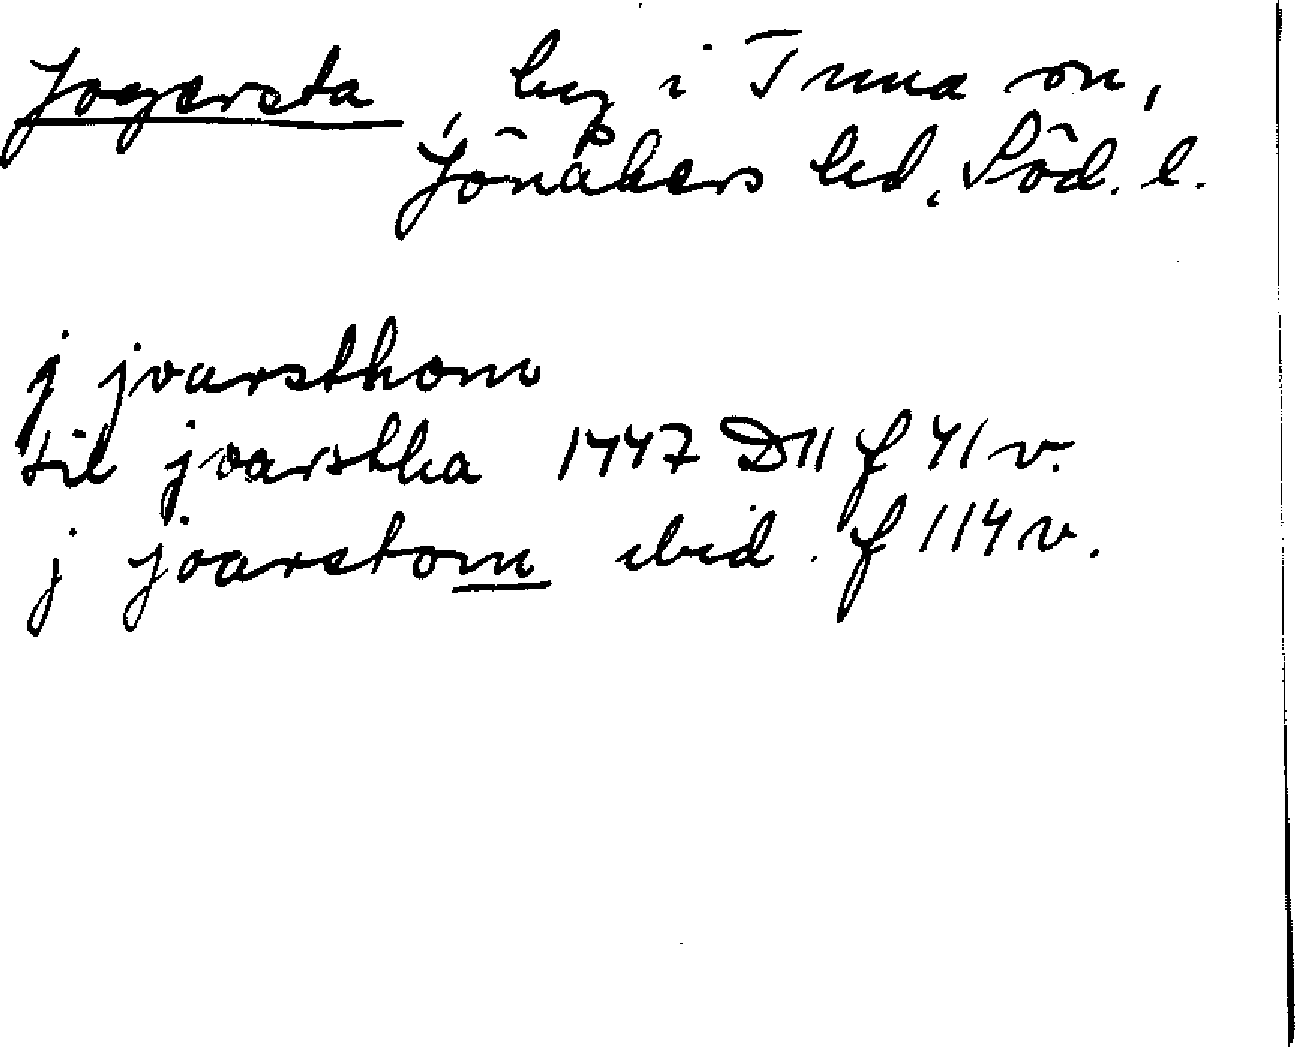 Jogersta, by i Tuna sn,
Jönåkers hd, Söd. l.
j jvarsthom
til jvarstha 1447 D11 f 41 v.
j joarstom ibid. f 114 v.